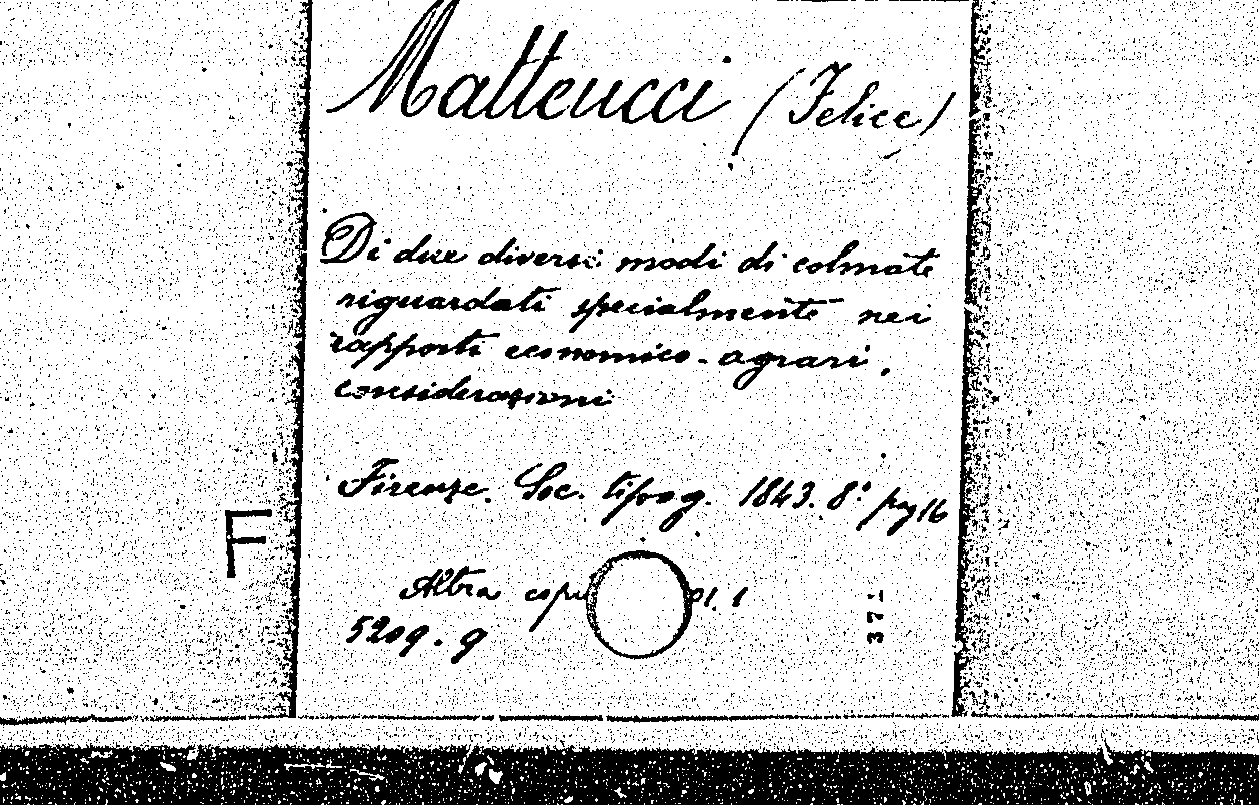 Matteucci (Felice)
Di due diversi modi di colmate
riguardati specialmente nei
rapporti economico-agrari,
considerazioni
Firenze. Soc. tipog. 1843. 8° pag 16
F
Altra 1
5209. 9
37